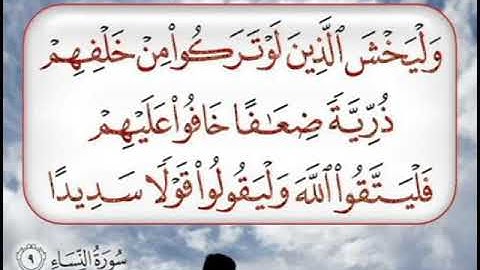 وَلْيَخْشَ ٱلَّذِينَ لَوْ تَرَكُوا۟ مِنْ خَلْفِهِمْ
ذُرِّيَّةً ضِعَـٰفًا خَافُوا۟ عَلَيْهِمْ
فَلْيَتَّقُوا۟ ٱللَّهَ وَلْيَقُولُوا۟ قَوْلًا سَدِيدًا
سُورَةُ النِّسَاءِ ٩